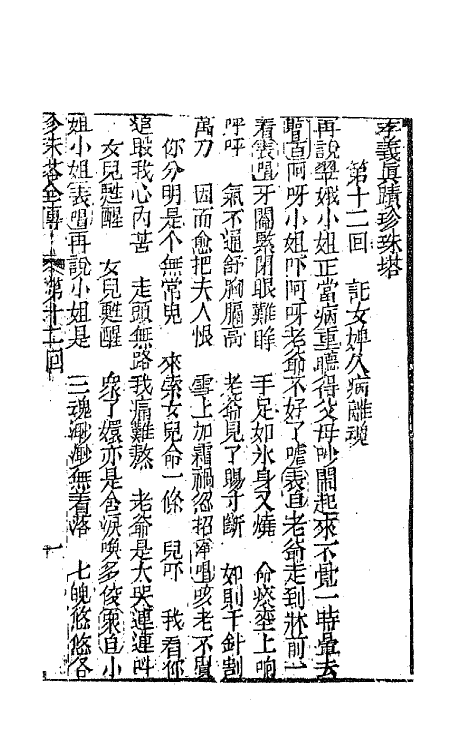 孝義眞蹟珍珠塔
第十二回 託女婢久病離魂
再說翠娥小姐正當病重聽得父母吵鬧起來不覺一時暈去
阿呀小姐吓阿呀老爺不好了嘘表白老爺走到牀前一
看表唱牙關緊閉眼難睁 手足如氷身又燒 命痰壅上响
呼呼 氣不通舒胸膈高 老爺見了腸寸斷 如則千針割
萬刀 因而愈把夫人恨 雪上加霜禍忽招 唱咳老不賢
你分明是个無常兒 來索女兒命一條 兒吓 我看你
這般我心內苦 走頭無路我痛難熬 老爺是大哭連連呌
女兒甦醒 女兒甦醒 衆了嬛亦是含淚喚多俊衆白小
姐小姐表唱再說小姐是 三魂渺渺無着落 七魄悠悠各
珍珠荅全傳 第十二回 一